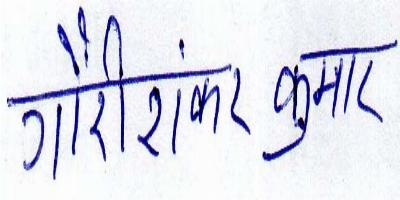 गौरीशंकर कुमार